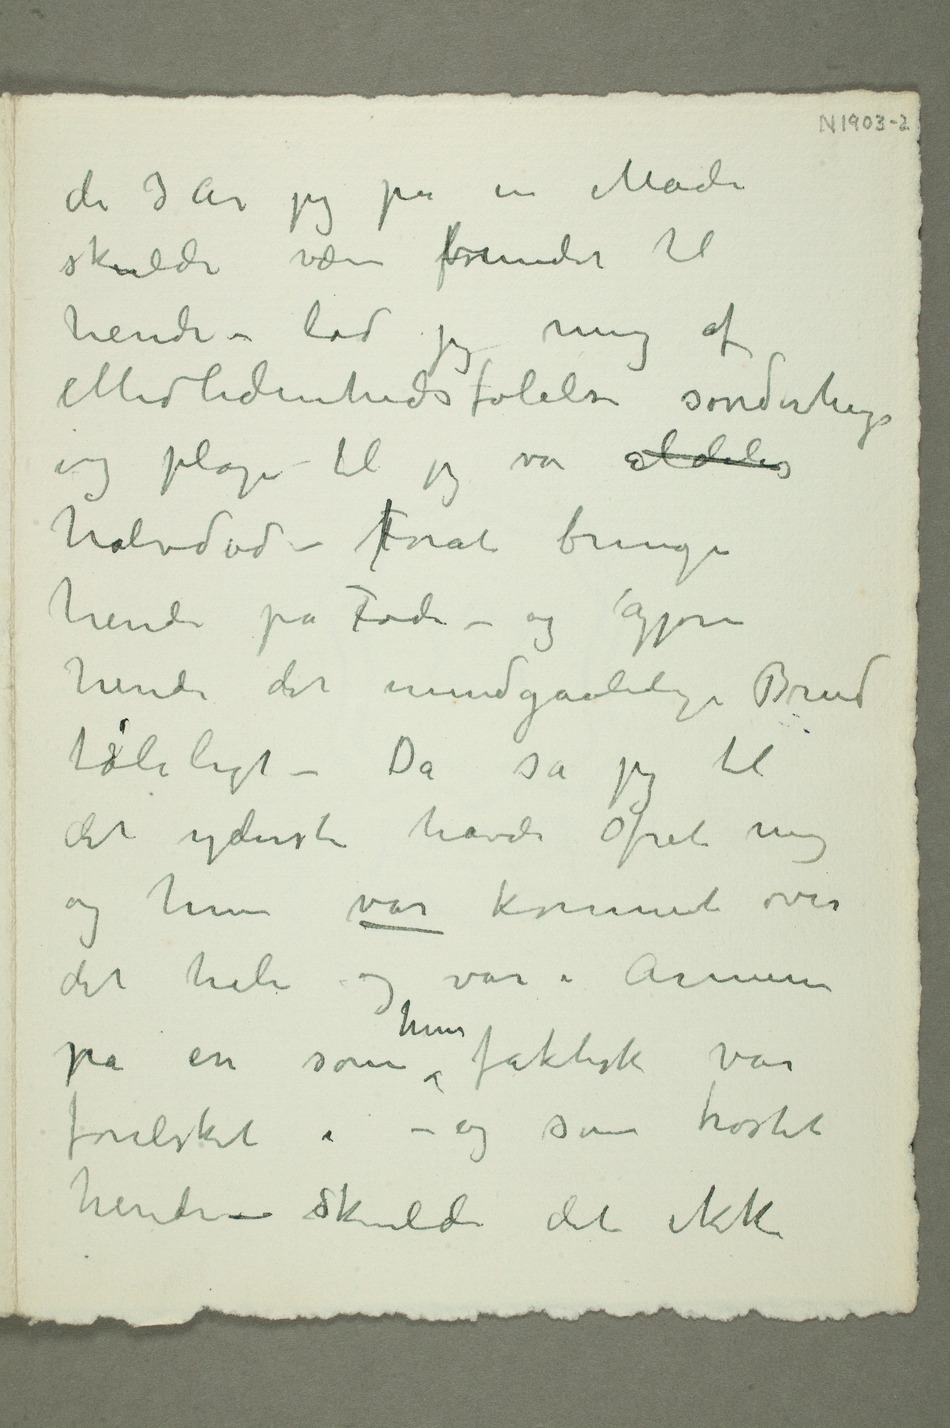 N1903-2
de 3 År jeg på en Måde
skulde være bundet til
hende – lod jeg mig af
Medlidenhedsfølelse sønderhug
og plage til jeg var aldeles
halvdød – Forat bringe
hende på Føde – og gjøre
hende det uundgaaelige Brud
tåleligt – Da så jeg til
det yderste havde ofret mig
og hun var kommet over
det hele og var i Armene
på en som hun faktisk var
forelsket i – og som trøstet
hende – skulde det ikke